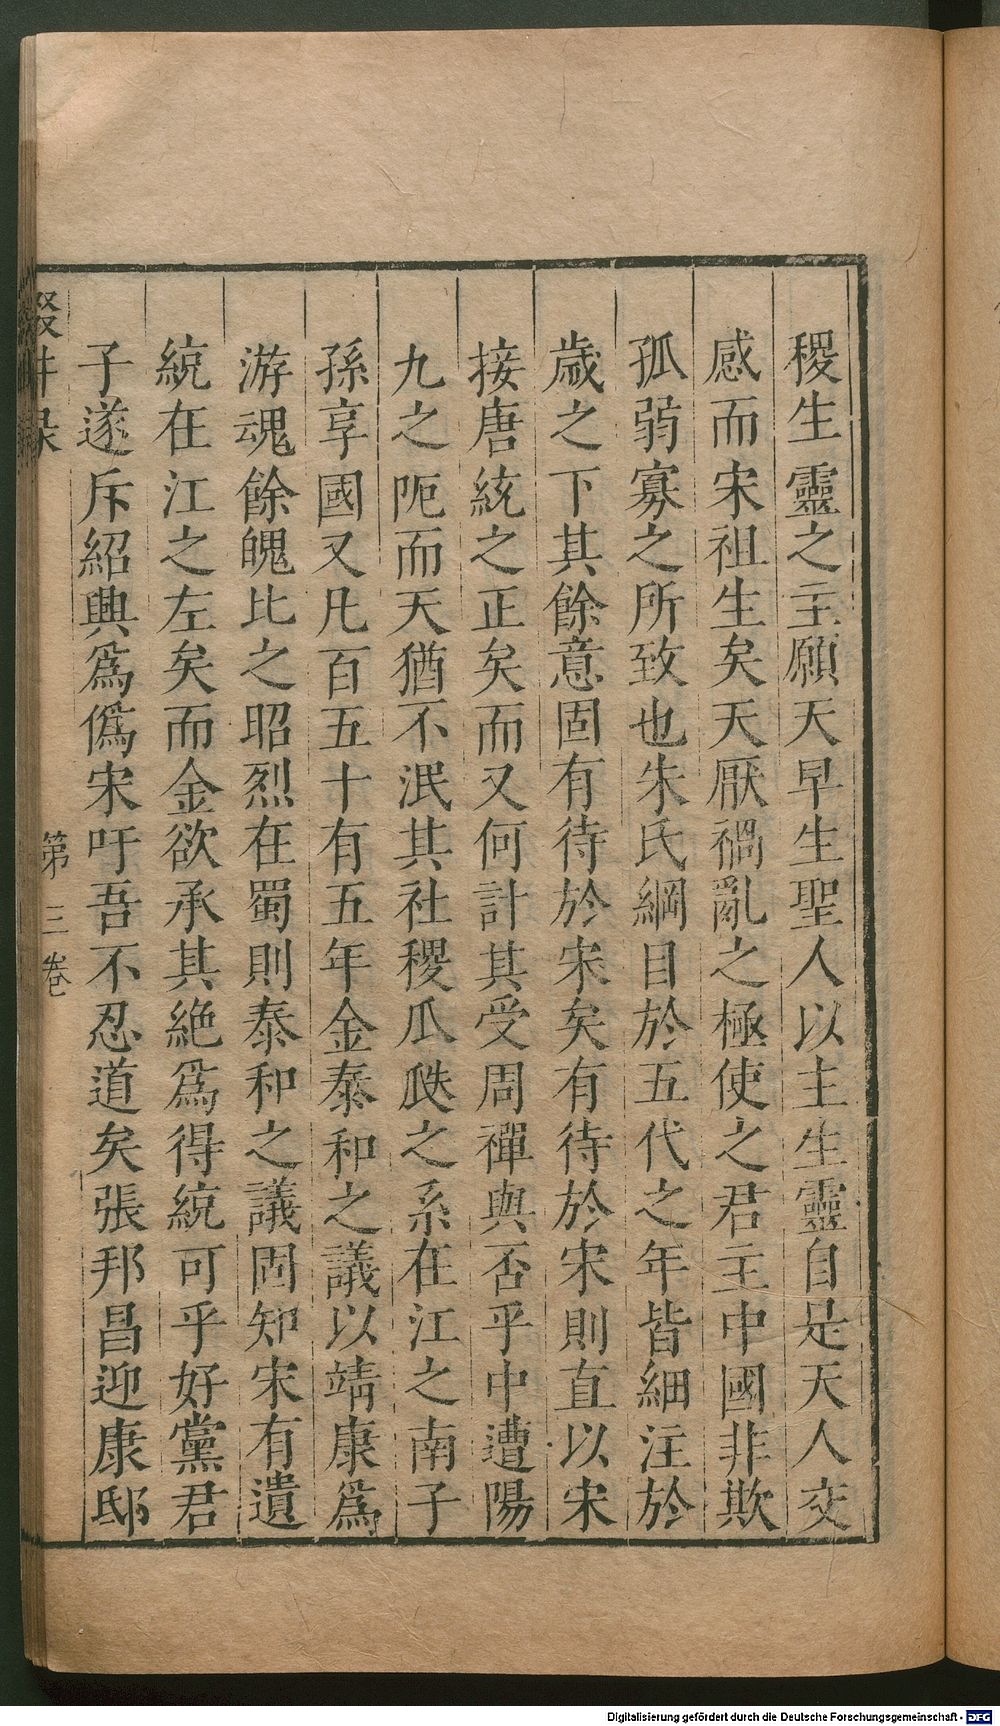 稷生靈之主願天早生聖人以主生靈自是天人交
感而宋祖生矣天厭禍亂之極使之君主中國非欺
孤弱寡之所致也朱氏綱目於五代之年皆細注於
歲之下其餘意固有待於宋矣有待於宋則直以宋
接唐統之正矣而又何計其受周禪與否乎中遭陽
九之阨而天猶不泯其社稷瓜瓞之系在江之南子
孫享國又凡百五十有五年金泰和之議以靖康為
游魂餘魄比之昭烈在蜀則泰和之議固知宋有遺
統在江之左矣而金欲承其絕為得統可乎好黨君
子遂斥紹興為偽宋吁吾不忍道矣張邦昌迎康邸
第三卷
Digitalisierung gefördert durch die Deutsche Forschungsgemeinschaft - DFG